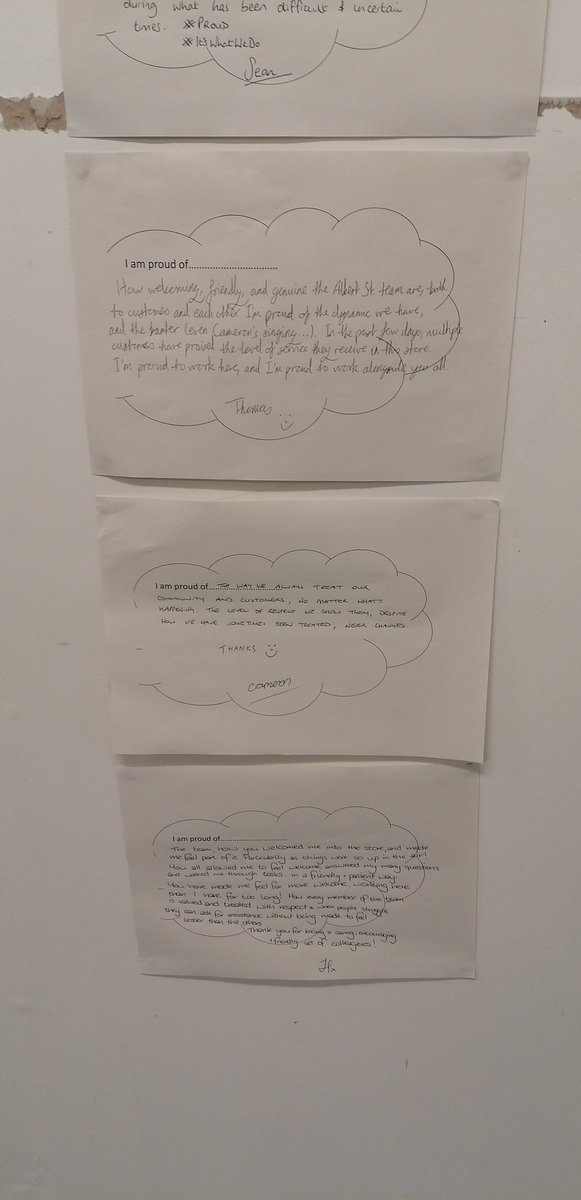 during what has been difficult & uncertain
times. #PROUD
#It'sWhatWeDo
Sean
I am proud of..............................
How welcoming, friendly, and genuine the Albert St. team are, both
to customers and each other. I'm proud of the dynamic we have,
and the banter (even Cameron's singing...). In the past few days, multiple
customers have praised the level of service they receive in this store.
I'm proud to work here, and I'm proud to work alongside you all.
Thomas
I am proud of... THE WAY WE ALWAYS TREAT OUR
COMMUNITY AND CUSTOMERS, NO MATTER WHAT'S
HAPPENING. THE LEVEL OF RESPECT WE SHOW THEM, DESPITE
HOW WE HAVE SOMETIMES BEEN TREATED, NEVER CHANGES.
THANKS
CAMERON
I am proud of..............................
The team, how you welcomed me into the store, and made
me feel part of it. Particularly as things were so up in the air!
You all allowed me to feel welcome, answered my many questions
and walked me through tasks in a friendly + patient way.
You have made me feel far more welcome working here
than I have for too long! How every member of the team
is valued and treated with respect + when people struggle
they can ask for assistance without being made to feel
lesser than the others
Thank you for being a caring, encouraging
+ friendly set of colleagues!